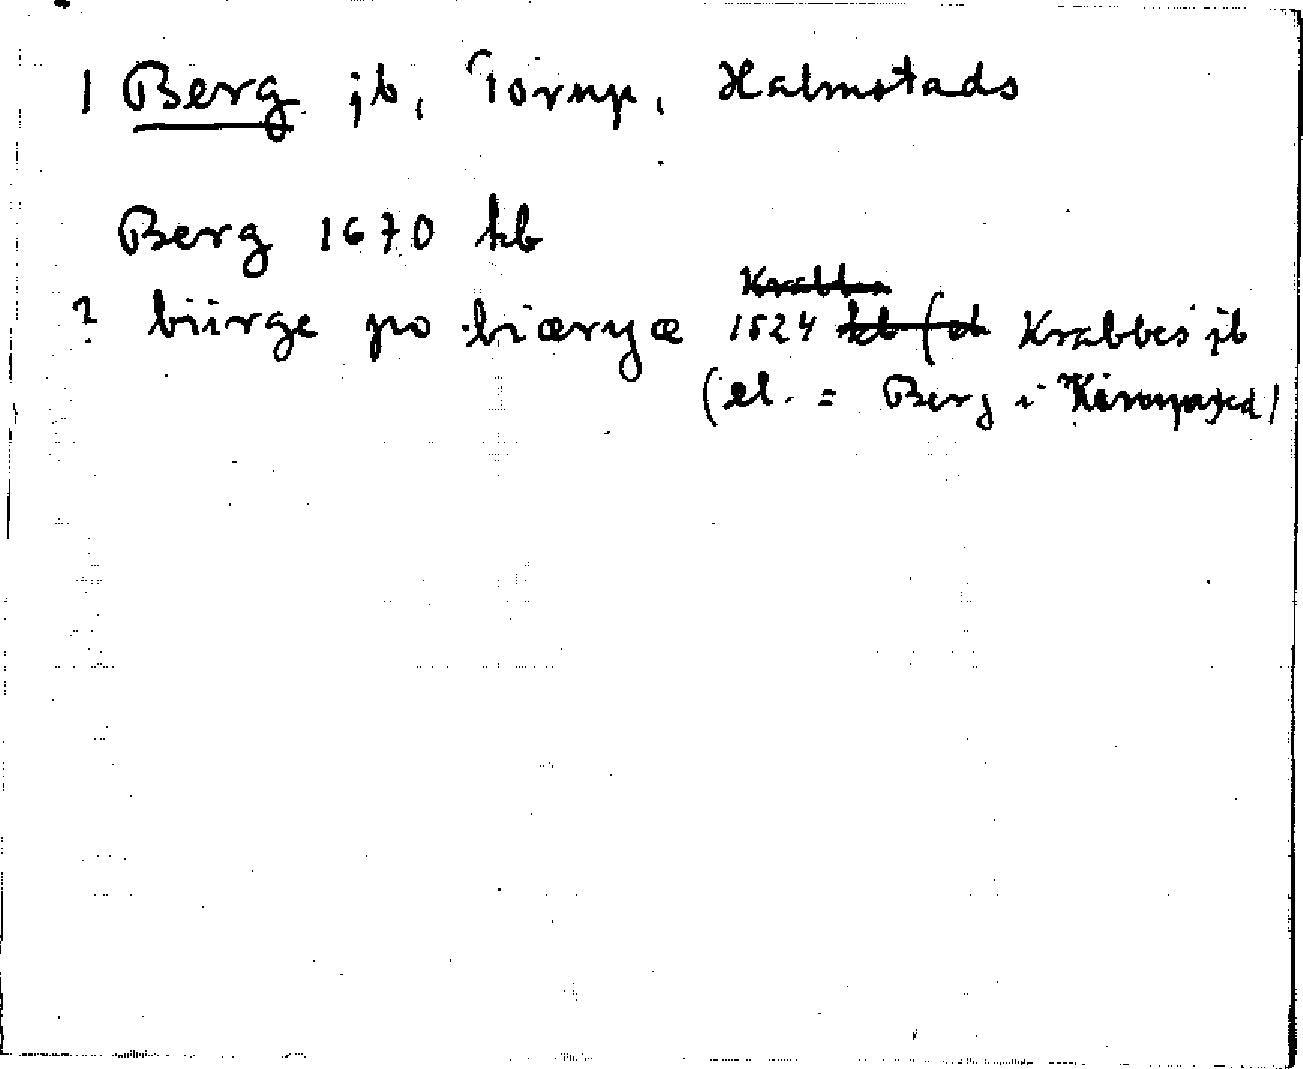 1 Berg jb, Torup, Halmstads
Berg 1670 kb
Krabbes
? biirge po biærgæ 1524 kb (el Krabbes jb
(el. = Berg i Kärnaryd)